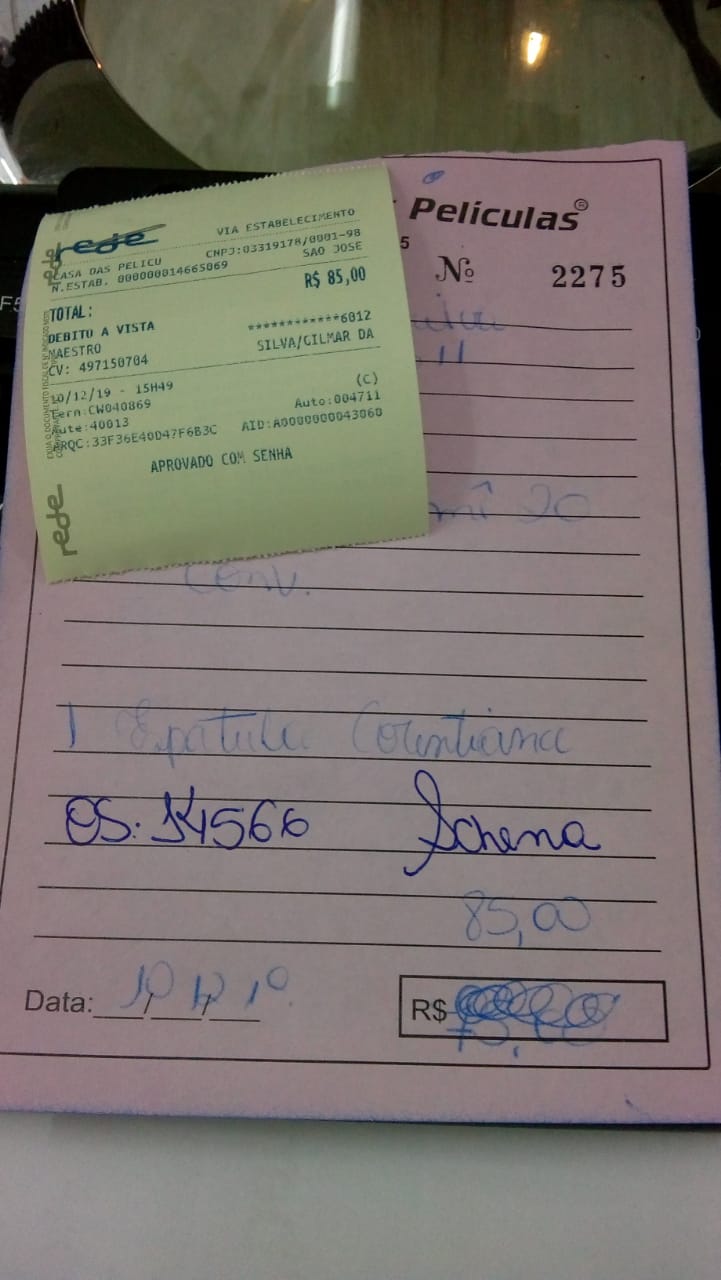 rede
VIA ESTABELECIMENTO
CASA DAS PELICU CNPJ:03319178/0001-98
N.ESTAB. 000000014665069 SAO JOSE
R$ 85,00
TOTAL:
DEBITO A VISTA ************6012
MAESTRO SILVA/GILMAR DA
CV: 497150704
10/12/19 - 15H49 (C)
Term:CW040869 Auto:004711
Aute:40013
ARQC:33F36E40D47F6B3C AID:A0000000043060
APROVADO COM SENHA
rede
rede
Películas®
5
Nº 2275
11
20
Conv.
1 Espatula Corintiana
OS: 14566 Schena
85,00
Data: 10/12/19
R$
F5